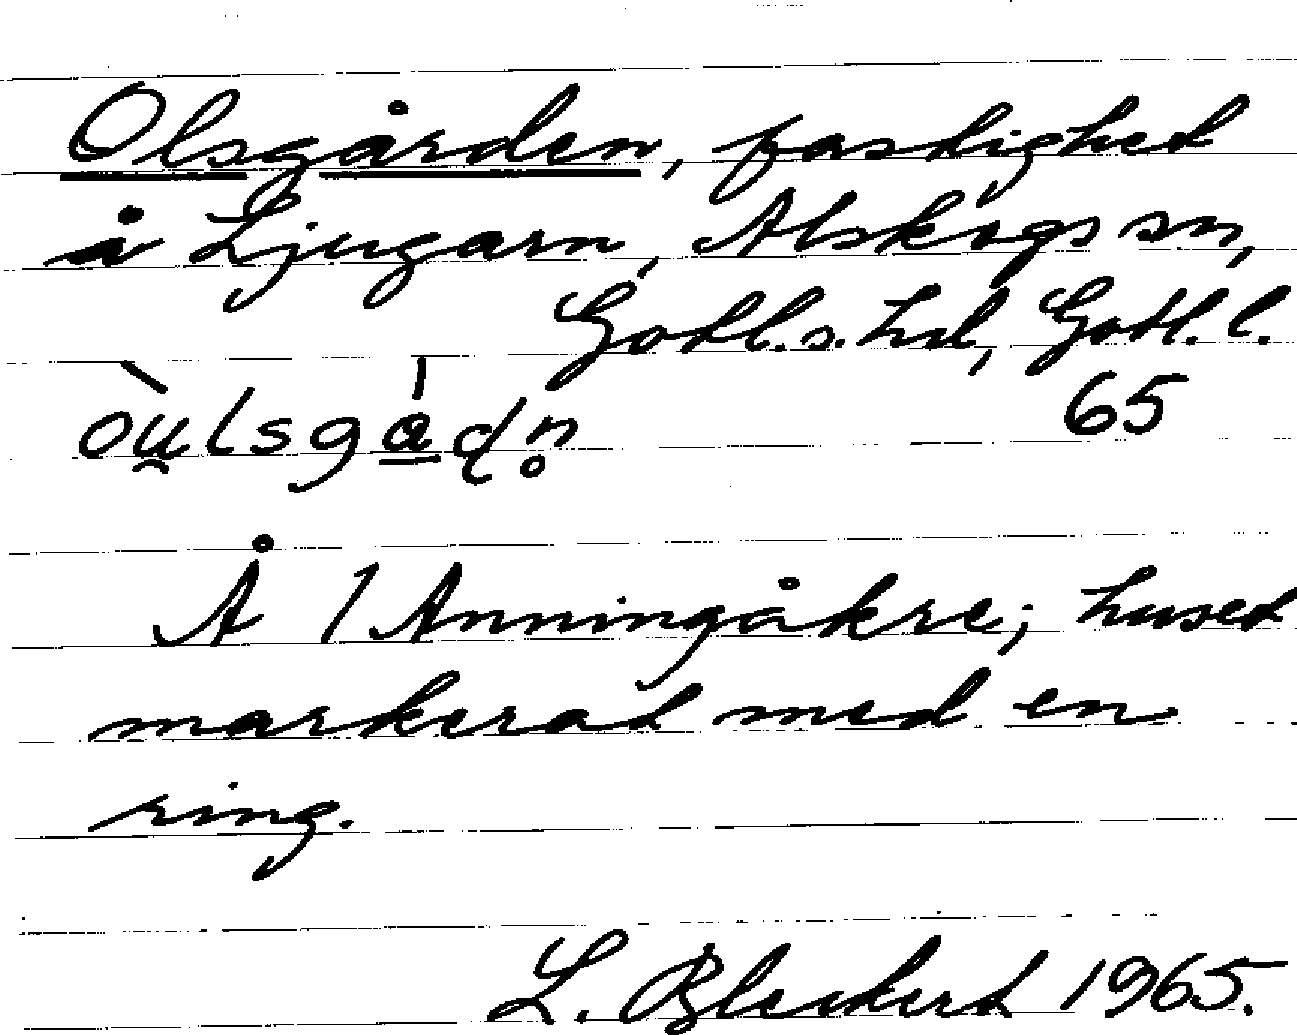 Olsgården, fastighet
å Ljugarn, Alskogs sn,
Gotl. s. hd, Gotl. l.
òu̯lsgá̱dn̥ 65
Å 1 Anningåkre; huset
markerat med en
ring.
L. Bleckert 1965.